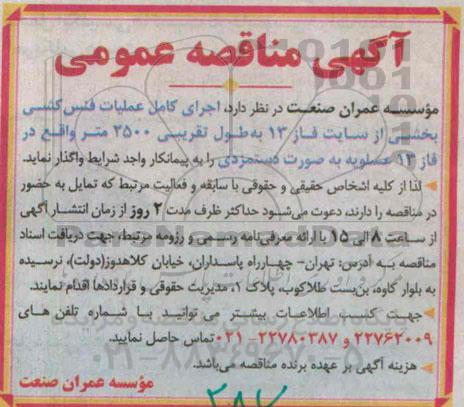 آگهی مناقصه عمومی
مؤسسه عمران صنعت در نظر دارد، اجرای کامل عملیات فنس‌کشی
بخشی از سایت فاز ۱۳ به‌طول تقریبی ۳۵۰۰ متر واقع در
فاز ۱۳ عسلویه به صورت دستمزدی را به پیمانکار واجد شرایط واگذار نماید.
لذا از کلیه اشخاص حقیقی و حقوقی با سابقه و فعالیت مرتبط که تمایل به حضور
در مناقصه را دارند، دعوت می‌شود حداکثر ظرف مدت ۲ روز از زمان انتشار آگهی
از ساعت ۸ الی ۱۵ با ارائه معرفی‌نامه رسمی و رزومه مرتبط، جهت دریافت اسناد
مناقصه به آدرس: تهران- چهارراه پاسداران، خیابان کلاهدوز(دولت)، نرسیده
به بلوار کاوه، بن‌بست طلاکوب، پلاک ۱، مدیریت حقوقی و قراردادها اقدام نمایند.
جهت کسب اطلاعات بیشتر می توانید با شماره تلفن های
۲۲۷۶۲۰۰۹ و ۲۲۷۸۰۳۸۷-۰۲۱ تماس حاصل نمایید.
هزینه آگهی بر عهده برنده مناقصه می‌باشد.
مؤسسه عمران صنعت
۲۸۷